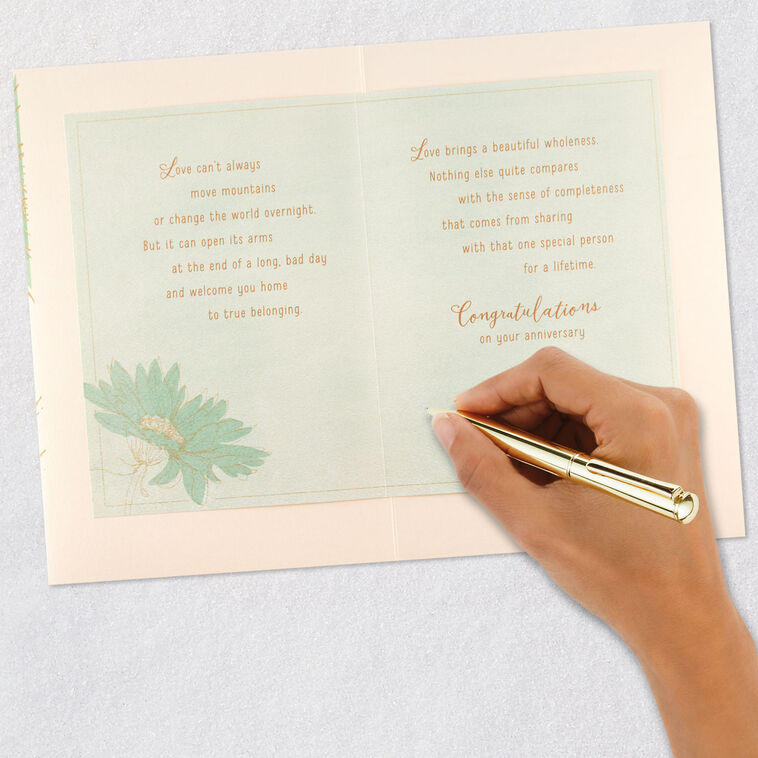 Love can't always
move mountains
or change the world overnight.
But it can open its arms
at the end of a long, bad day
and welcome you home
to true belonging.
Love brings a beautiful wholeness.
Nothing else quite compares
with the sense of completeness
that comes from sharing
with that one special person
for a lifetime.
Congratulations
on your anniversary